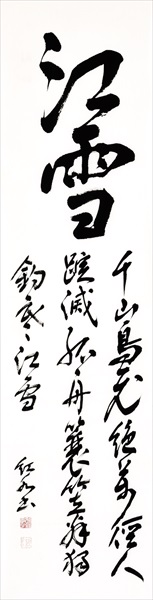 江雪
千山鳥飛絶萬徑人
蹤滅孤舟蓑笠翁獨
釣寒江雪